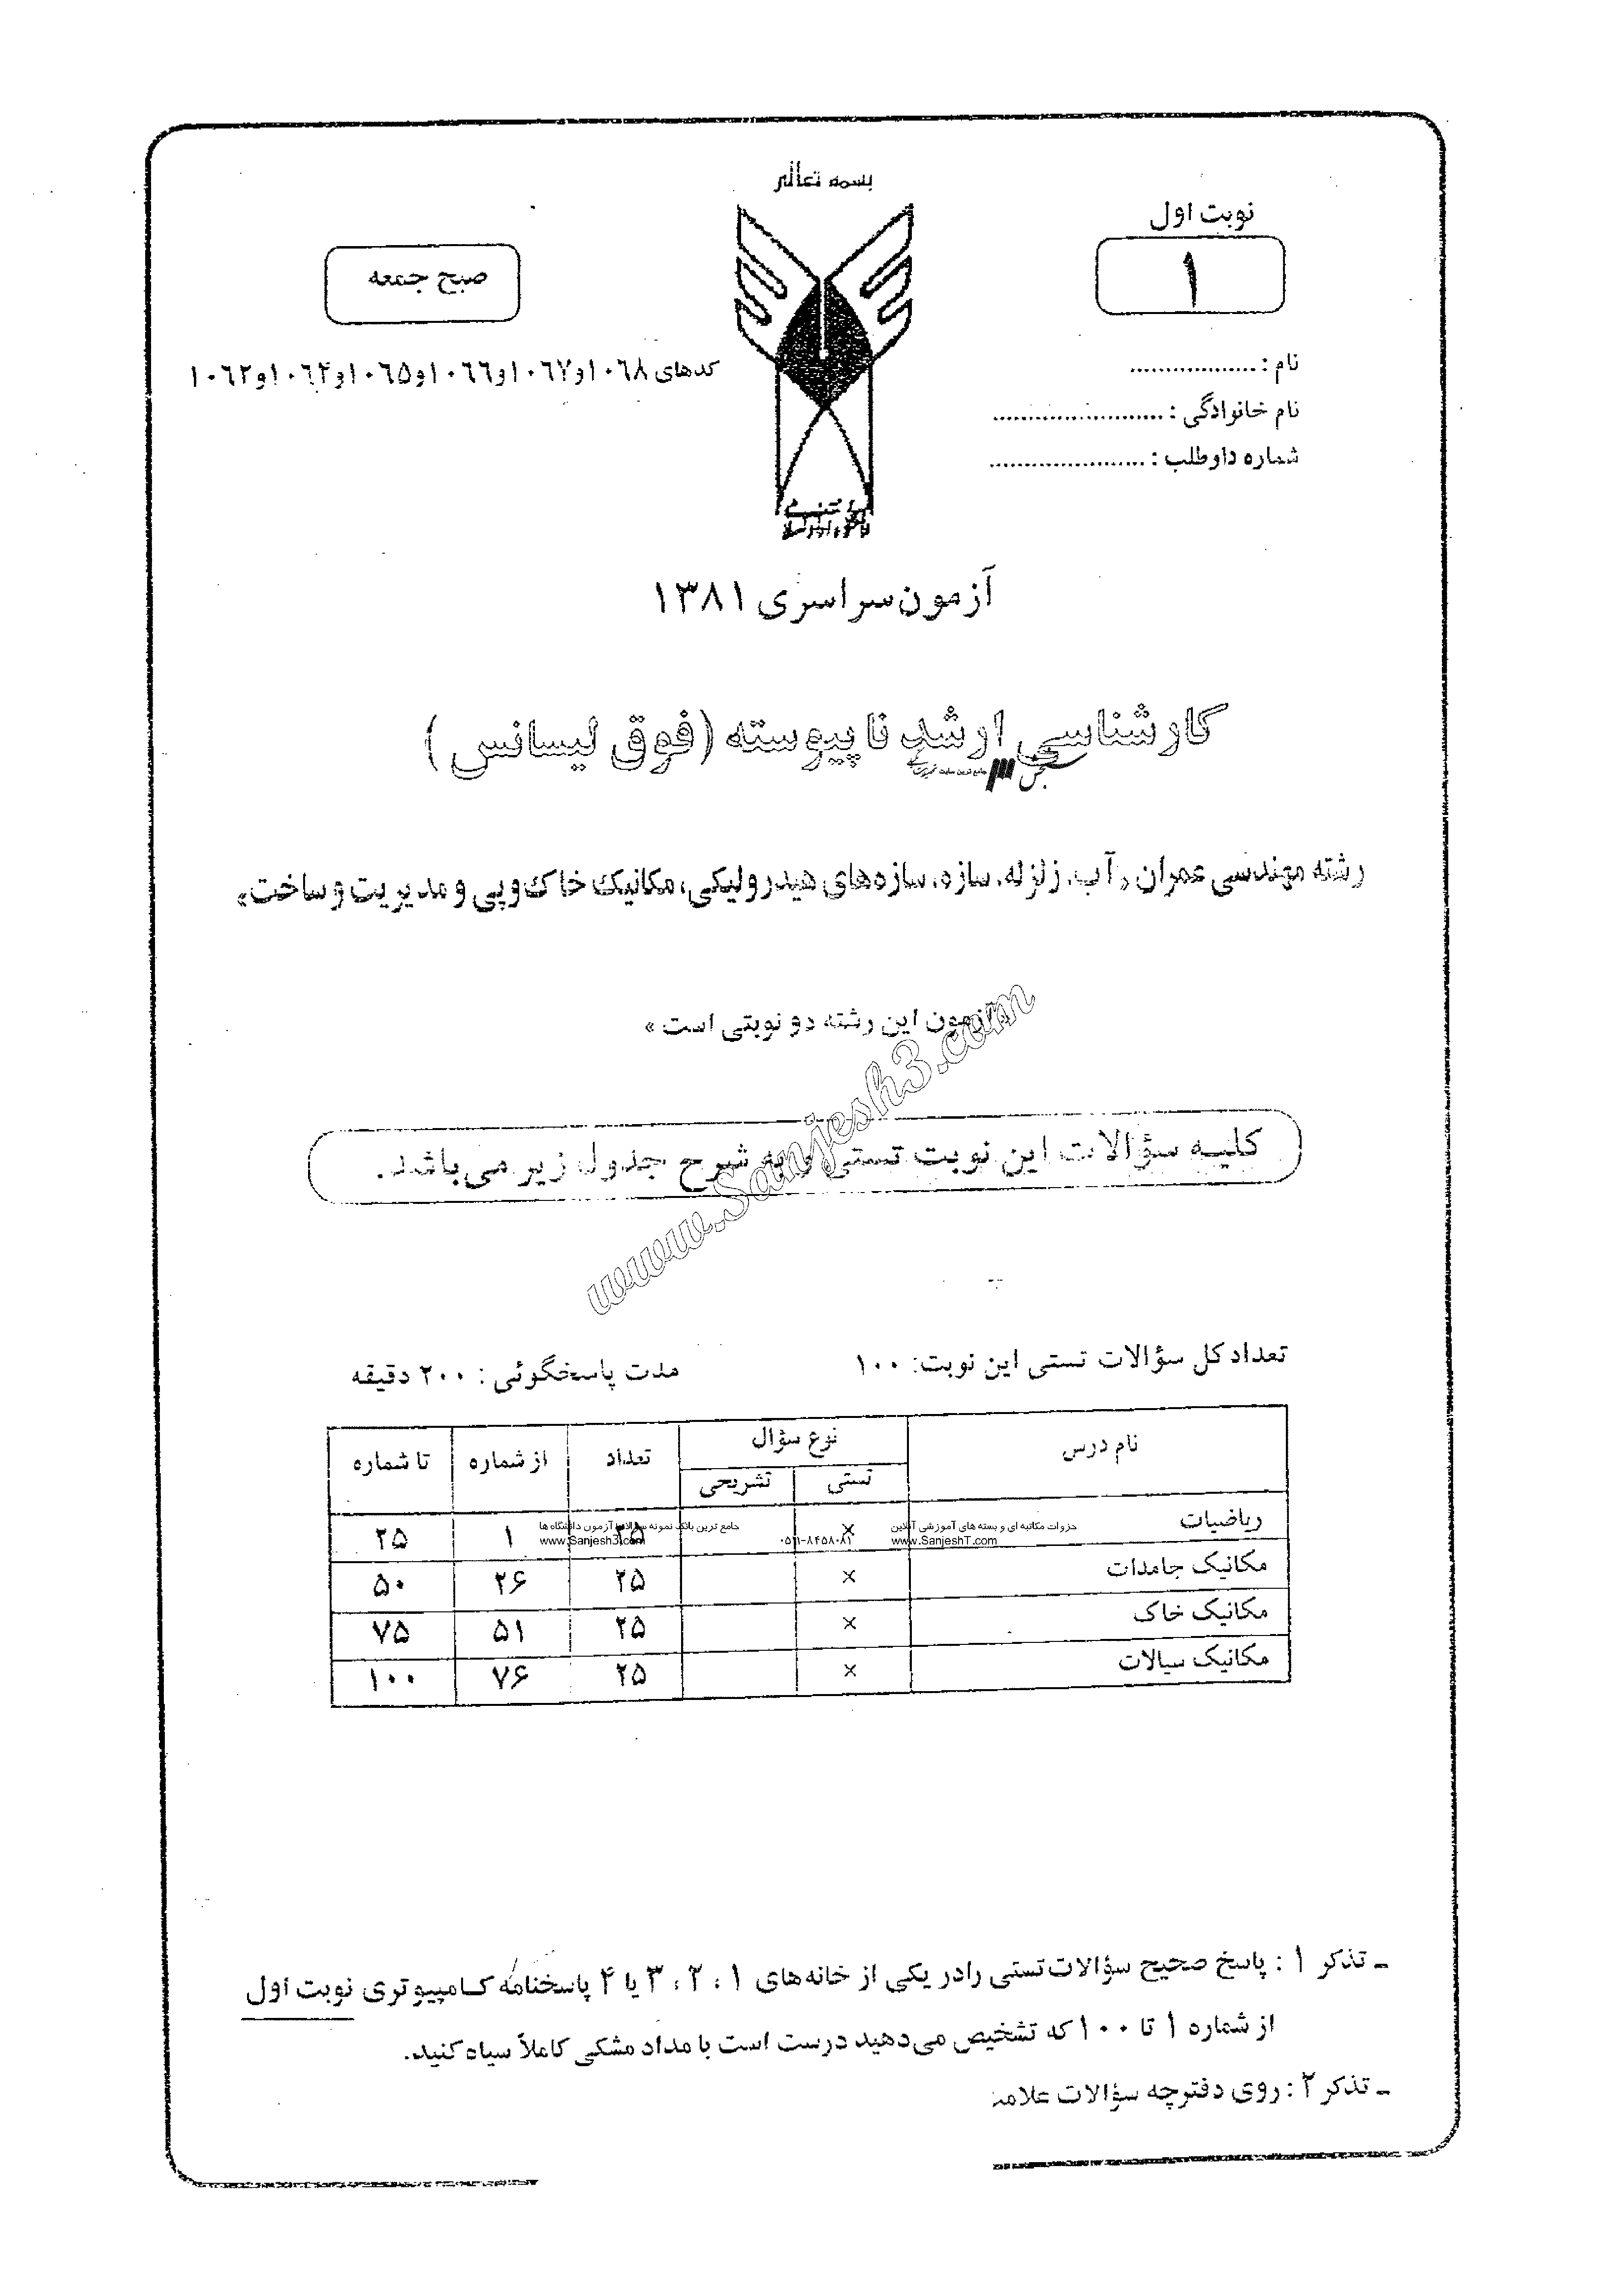 بسمه تعالی
نوبت اول
۱
صبح جمعه
نام : ..................
نام خانوادگی : ........................
شماره داوطلب : ......................
کدهای ۱۰۶۸و۱۰۶۷و۱۰۶۶و۱۰۶۵و۱۰۶۴و۱۰۶۲
آزمون سراسری ۱۳۸۱
کارشناسی ارشد ناپیوسته (فوق لیسانس)
رشته مهندسی عمران «آب، زلزله، سازه، سازه‌های هیدرولیکی، مکانیک خاک و پی و مدیریت و ساخت»
«آزمون این رشته دو نوبتی است»
www.Sanjesh3.com
کلیه سؤالات این نوبت تستی و به شرح جدول زیر می‌باشد.
تعداد کل سؤالات تستی این نوبت: ۱۰۰
مدت پاسخگوئی : ۲۰۰ دقیقه
نام درس نوع سؤال تعداد از شماره تا شماره
تستی تشریحی
ریاضیات × ۲۵ ۱ ۲۵
جزوات مکاتبه ای و بسته های آموزشی آنلاین
www.SanjeshT.com
۰۵۱۱-۸۴۵۸۰۸۱
جامع ترین بانک نمونه سوالات آزمون دانشگاه ها
www.Sanjesh3.com
مکانیک جامدات × ۲۵ ۲۶ ۵۰
مکانیک خاک × ۲۵ ۵۱ ۷۵
مکانیک سیالات × ۲۵ ۷۶ ۱۰۰
ـ تذکر ۱ : پاسخ صحیح سؤالات تستی را در یکی از خانه‌های ۱ ، ۲ ، ۳ یا ۴ پاسخنامه کامپیوتری نوبت اول
از شماره ۱ تا ۱۰۰ که تشخیص می‌دهید درست است با مداد مشکی کاملاً سیاه کنید.
ـ تذکر ۲ : روی دفترچه سؤالات